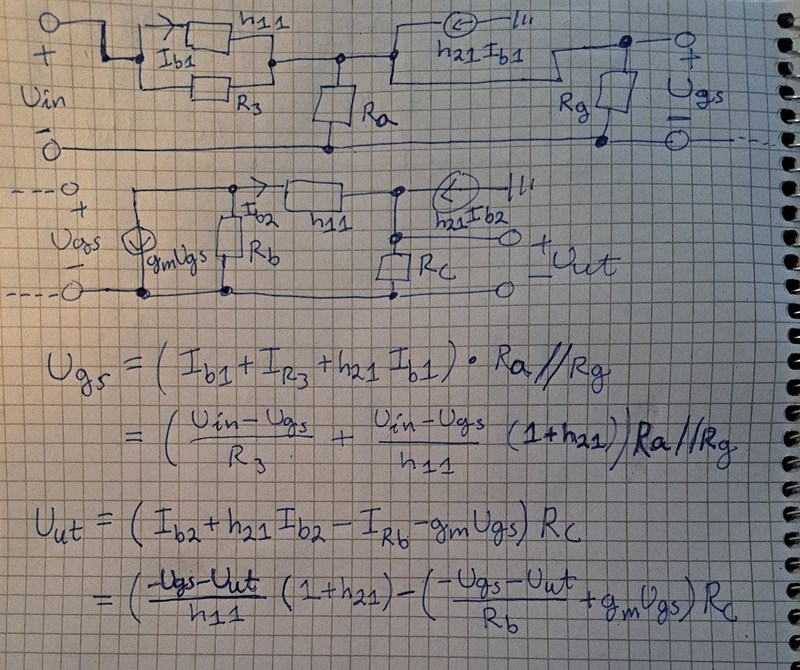 h11
Ib1
h21Ib1
+
Uin
R3
Ra
Rg
+
Ugs
−
−
+
Ugs
−
gmUgs
Ib2
Rb
h11
h21Ib2
RC
+
−
Uut
Ugs = (Ib1+IR3+h21 Ib1) • Ra//Rg
= (Uin−Ugs/R3 + Uin−Ugs/h11 (1+h21)) Ra//Rg
Uut = (Ib2+h21 Ib2 − IRb − gmUgs) RC
= (−Ugs−Uut/h11 (1+h21) − (−Ugs−Uut/Rb + gmUgs) RC